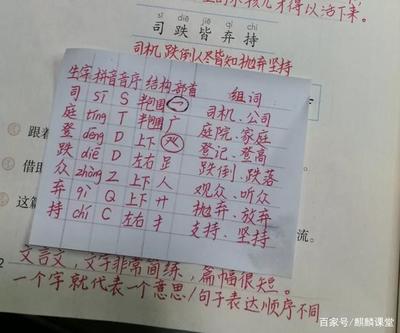 得以活下来。
sī diē jiē qì chí
司跌皆弃持
司机 跌倒 人尽皆知 抛弃 坚持
生字 拼音 音序 结构 部首 组词
司 sī S 半包围 一 司机、公司
庭 tíng T 半包围 广 庭院、家庭
登 dēng D 上下 癶 登记、登高
跟着
跌 diē D 左右 足 跌倒、跌落
借助
众 zhòng Z 上下 人 观众、听众
弃 qì Q 上下 廾 抛弃、放弃
这篇
持 chí C 左右 扌 支持、坚持
流。
2
文言文,文字非常简练,篇幅很短。
一个字就代表一个意思/句子表达顺序不同
百家号/麒麟课堂